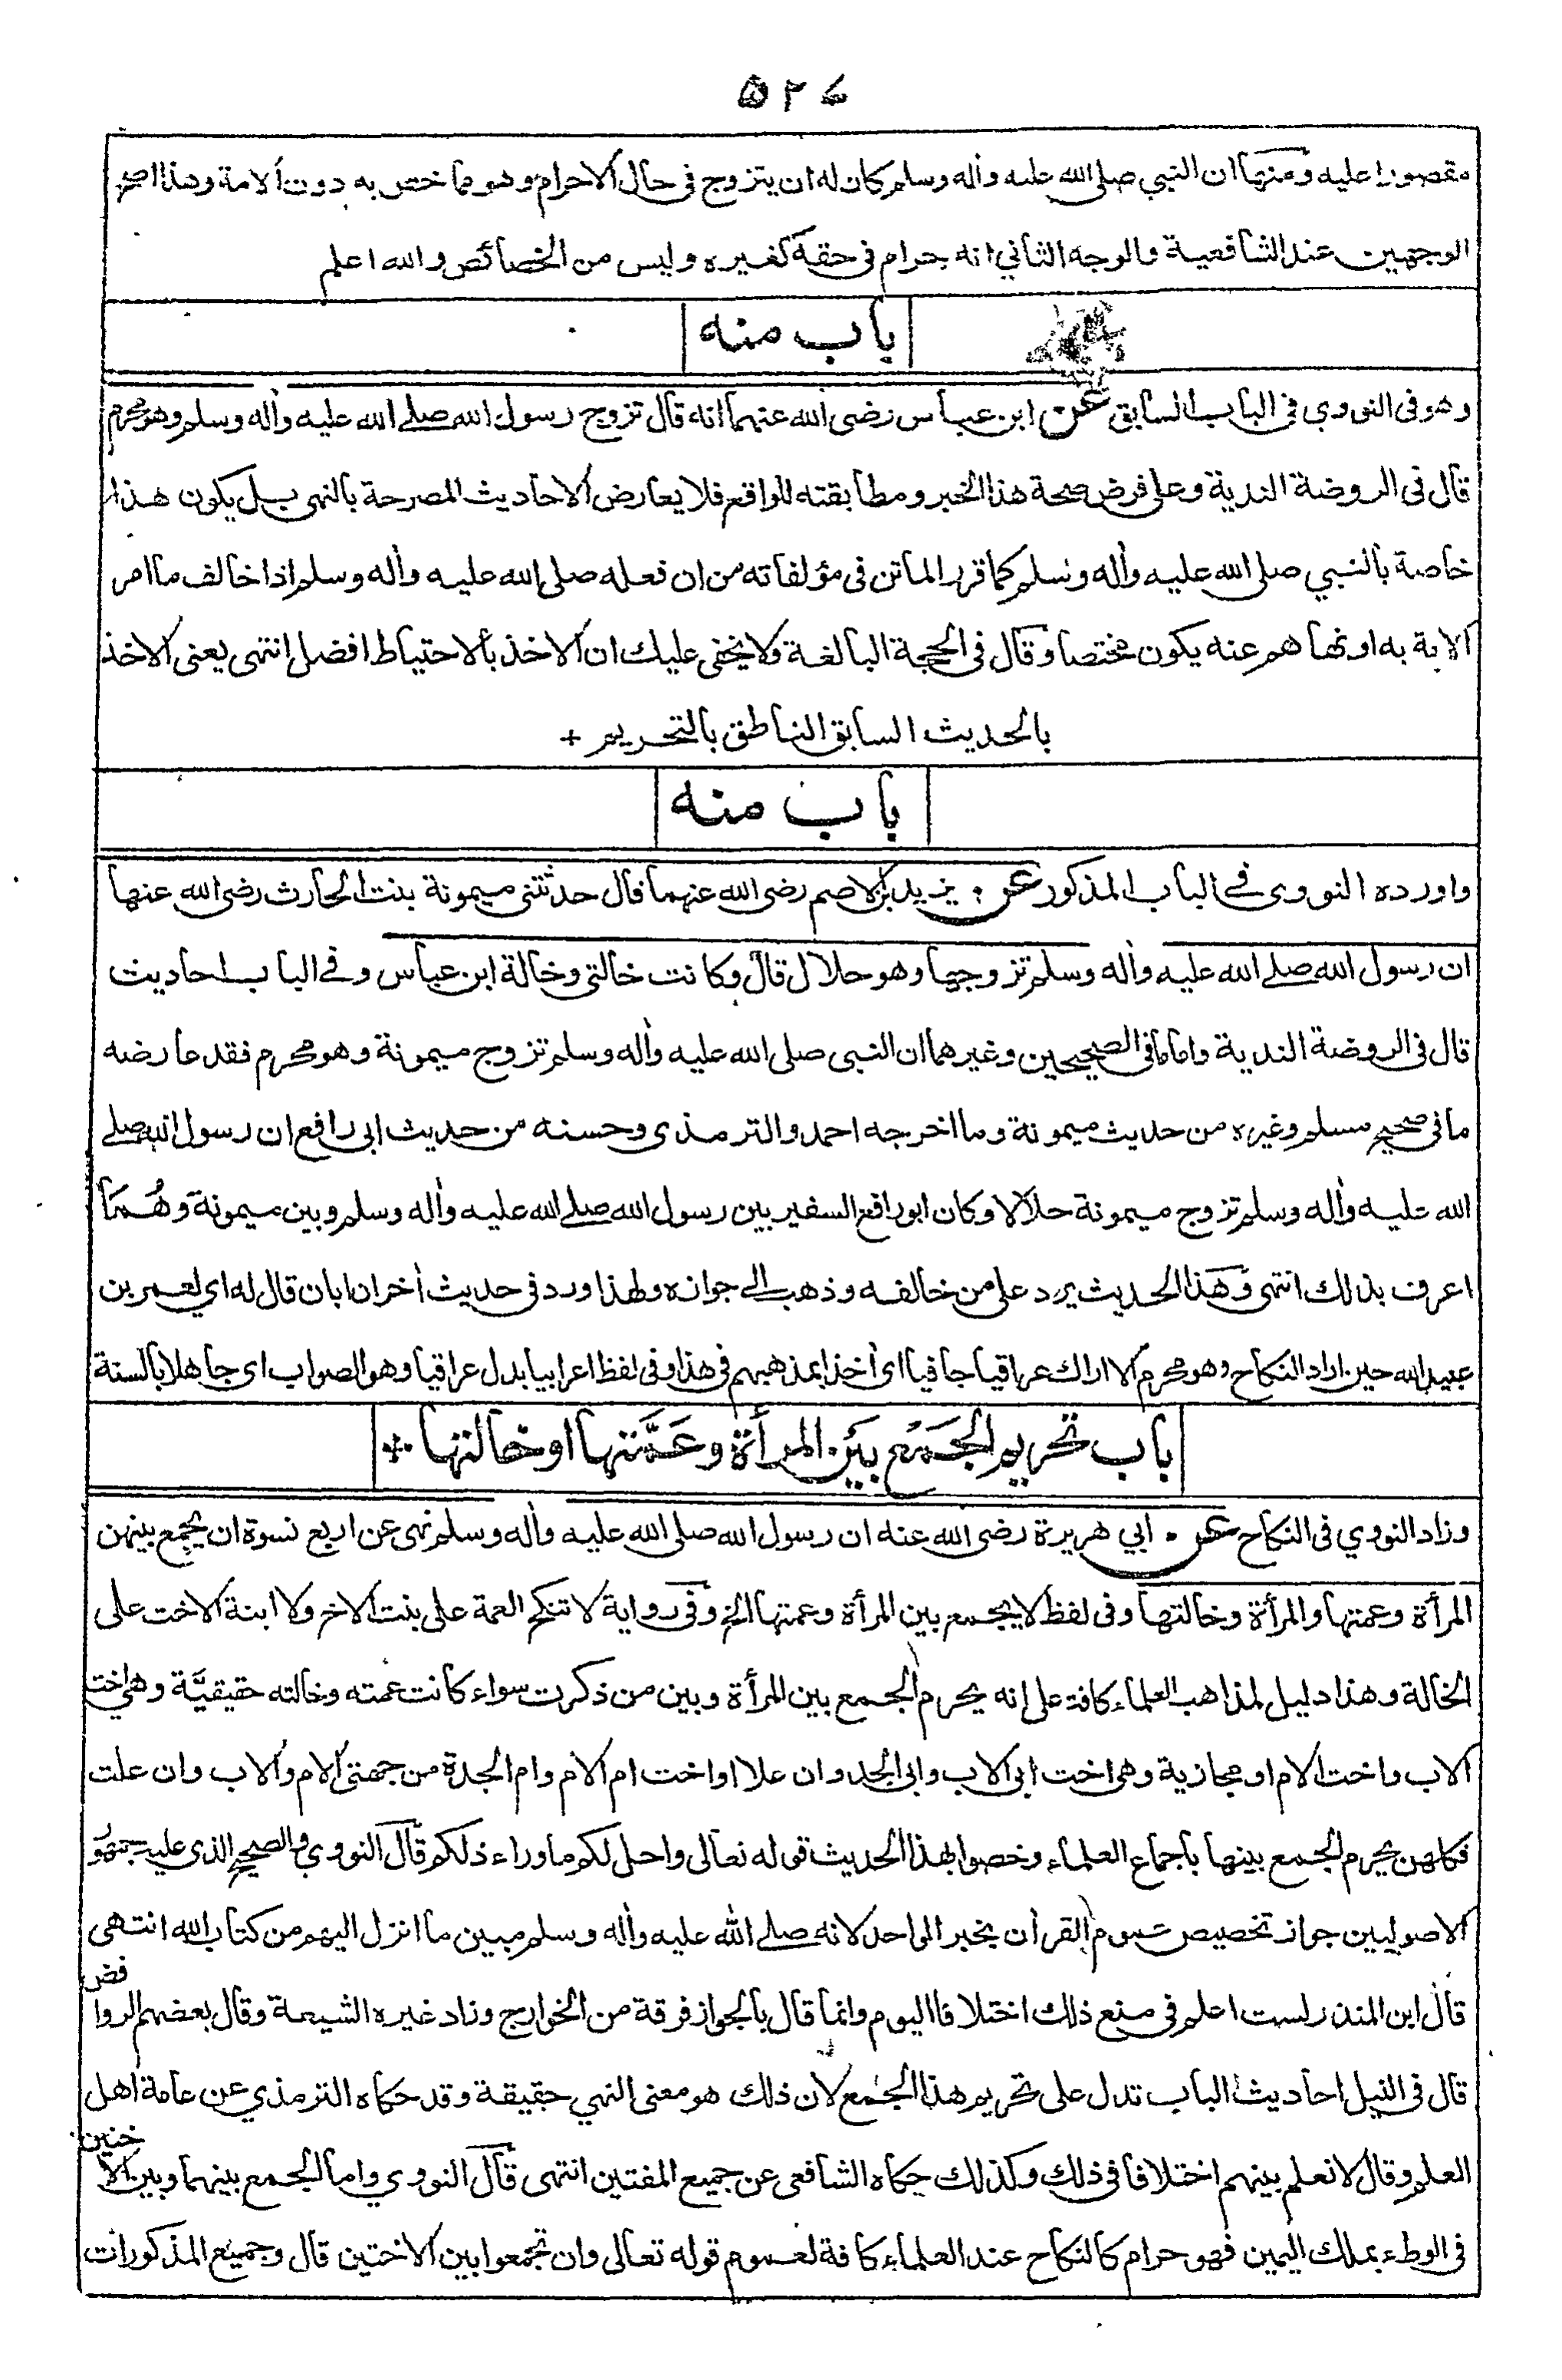 ٥٢٧
مقصورا عليه ومنها ان النبي صلى الله عليه وأله وسلم كان له ان يتزوج فى حال الاحرام وهو مما خص به دون الامة وهذا اصح
الوجهين عند الشافعية والوجه الثاني انه حرام فى حقه كغيره وليس من الخصائص والله اعلم
باب منه
وهو فى النووي فى الباب السابق عن ابن عباس رضى الله عنهما انه قال تزوج رسول الله صلى الله عليه وأله وسلم وهو محرم
قال فى الروضة الندية وعلى فرض صحة هذا الخبر ومطابقته للواقع فلا يعارض الاحاديث المصرحة بالنهى بل يكون هذا
خاصة بالنبي صلى الله عليه وأله وسلم كما قرر الماتن فى مؤلفاته من ان فعله صلى الله عليه وأله وسلم اذا خالف ما امر
الامة به او نهاهم عنه يكون مختصا وقال فى الحجة البالغة ولا يخفى عليك ان الاخذ بالاحتياط افضل انتهى يعنى الاخذ
بالحديث السابق الناطق بالتحريم +
باب منه
واورده النووى فے الباب المذكور عن يزيد بن الاصم رضى الله عنهما قال حدثتنى ميمونة بنت الحارث رضى الله عنها
ان رسول الله صلے الله عليه وأله وسلم تزوجها وهو حلال قال وكانت خالتى وخالة ابن عباس وفے الباب احاديث
قال فى الروضة الندية واما ما فى الصحيحين وغيرهما ان النبى صلى الله عليه وأله وسلم تزوج ميمونة وهو محرم فقد عارضه
ما فى صحيح مسلم وغيره من حديث ميمونة وما اخرجه احمد والترمذى وحسنه من حديث ابى رافع ان رسول الله صلے
الله عليه وأله وسلم تزوج ميمونة حلالا وكان ابو رافع السفير بين رسول الله صلے الله عليه وأله وسلم وبين ميمونة وهُمَا
اعرف بذلك انتهى وهذا الحديث يرد على من خالفه وذهب الى جوازه ولهذا ورد فى حديث أخر ان ابان قال له اي لعمر بن
عبيد الله حين اراد النكاح وهو محرم الا اراك عراقيا جافيا اى أخذا بمذهبهم فى هذا وفى لفظ اعرابيا بدل عراقيا وهو الصواب اى جاهلا بالسنة
باب تحريم الجَمْع بَيْن المرأة وعَمَّتها او خالتها ٭
وزاد النووي فى النكاح عن ابي هريرة رضى الله عنه ان رسول الله صلى الله عليه وأله وسلم نهى عن اربع نسوة ان يجمع بينهن
المرأة وعمتها والمرأة وخالتها وفى لفظ لا يجمع بين المرأة وعمتها الخ وفى رواية لا تنكح العمة على بنت الاخ ولا ابنة الاخت على
الخالة وهذا دليل لمذاهب العلماء كافة على انه يحرم الجمع بين المرأة وبين من ذكرت سواء كانت عمته وخالته حقيقيَّة وهى اخت
الاب واخت الام او مجازية وهى اخت ابى الاب وابى الجد وان علا او اخت ام الام وام الجدة من جهتى الام والاب وان علت
فكلهن يحرم الجمع بينها باجماع العلماء وخصوا بهذا الحديث قوله تعالى واحل لكم ما وراء ذلكم قال النووي والصحيح الذي عليه جمهور
الاصوليين جواز تخصيص عموم القرأن بخبر الواحد لانه صلے الله عليه وأله وسلم مبين ما انزل اليهم من كتاب الله انتهى
قال ابن المنذر لست اعلم فى منع ذلك اختلافا اليوم وانما قال بالجواز فرقة من الخوارج وزاد غيره الشيعة وقال بعضهم الروافض
قال فى النيل احاديث الباب تدل على تحريم هذا الجمع لان ذلك هو معنى النهي حقيقة وقد حكاه الترمذي عن عامة اهل
العلم وقال لا نعلم بينهم اختلافا فى ذلك وكذلك حكاه الشافعى عن جميع المفتين انتهى قال النووي واما الجمع بينهما وبين الاختين
فى الوطء بملك اليمين فهو حرام كالنكاح عند العلماء كافة لعموم قوله تعالى وان تجمعوا بين الاختين قال وجميع المذكورات